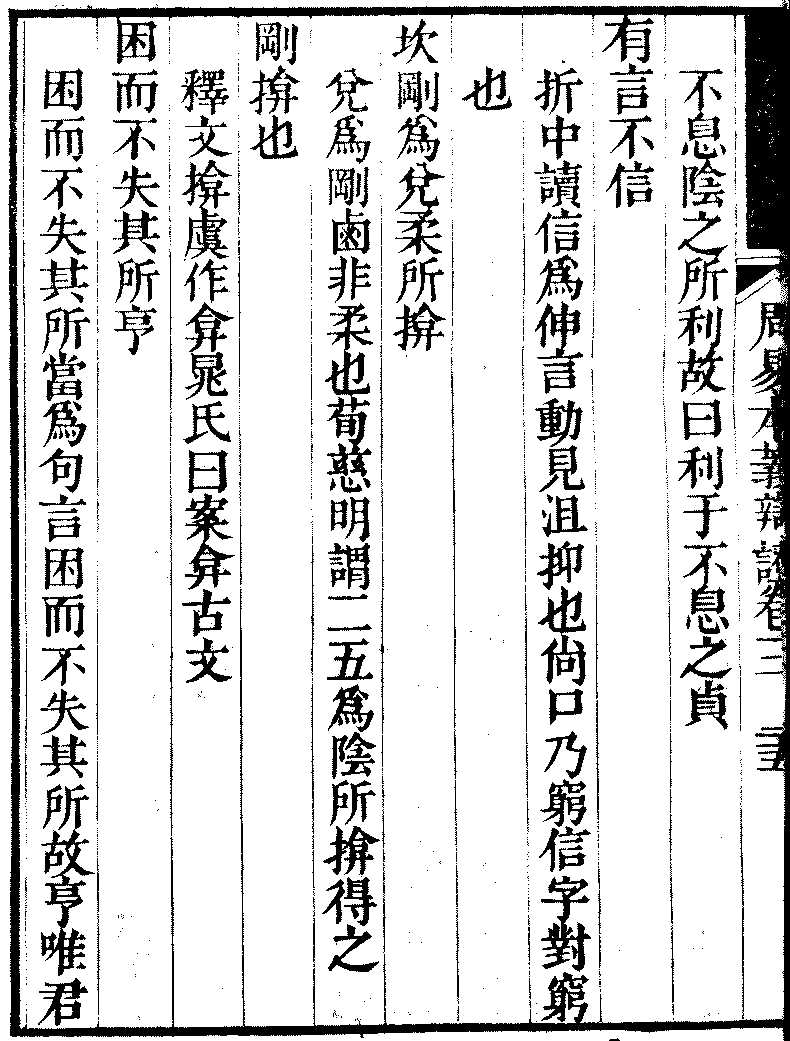 周易本義辯證卷三　二五
不息陰之所利故曰利于不息之貞
有言不信
折中讀信爲伸言動見沮抑也尙口乃窮信字對窮
也
坎剛爲兌柔所揜
兌爲剛鹵非柔也荀慈明謂二五爲陰所揜得之
剛揜也
釋文揜虞作弇晁氏曰案弇古文
困而不失其所亨
困而不失其所當爲句言困而不失其所故亨唯君